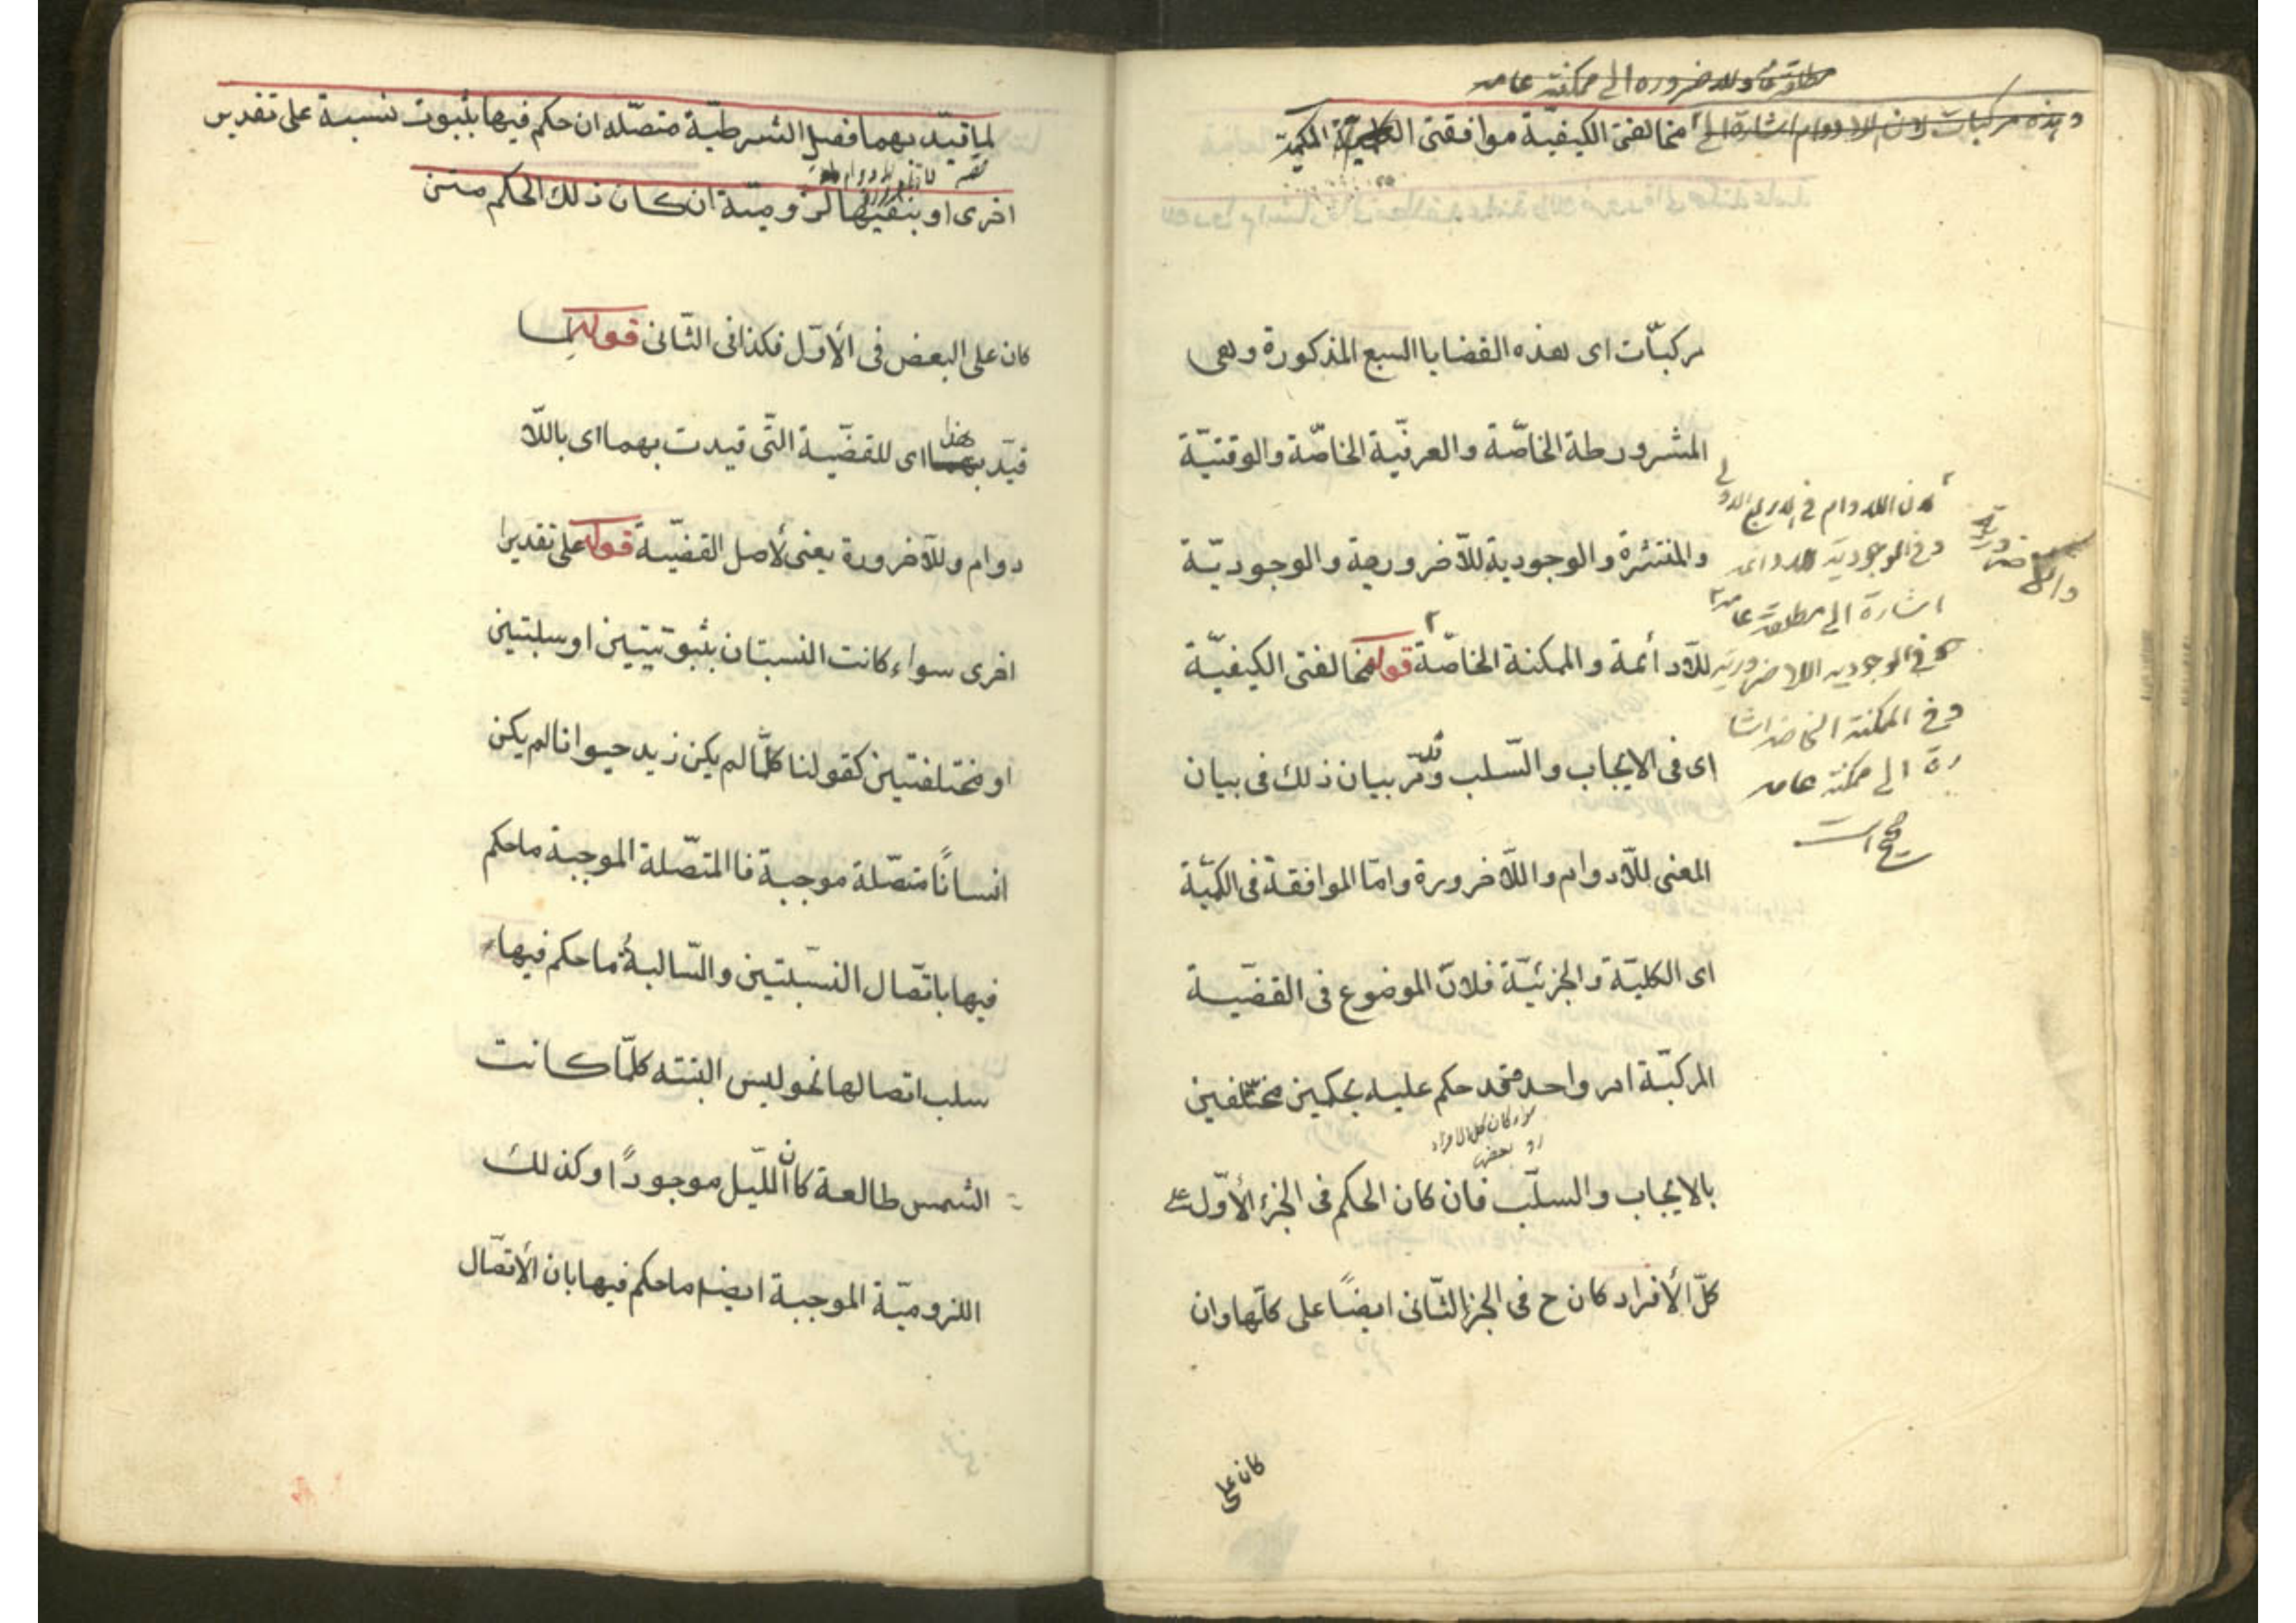 مطلقة عامة واللاضرورة الى ممكنة عامة
وهذه مركبات لان اللادوام اشارة الى مخالفتى الكيفيّة موافقتى الكميّة
مركبّات اى هذه القضايا السبع المذكورة وهى
المشرورطة الخاصّة والعرفيّة الخاصّة والوقتيّة
والمنتشرة والوجودية للّاضروريعة والوجوديّة
للّادأئمة والممكنة الخاصّة قوله مخالفتى الكيفيّة
اى فى الايجاب والسّلب وقد مّر بيان ذلك فى بيان
المعنى للّادوام واللّاضرورة وامّا الموافقة فى الكميّة
اى الكليّة والجزئيّة فلانّ الموضوع فى القضيّة
المركبّة امر واحد قد حكم عليه بحكمين مختلفين
بالايجاب والسلّب فان كان الحكم فى الجزء الأوّل على
كلّ الأفراد كان ح فى الجزء الثّانى ايضًا على كلّها وان
كان على
لان اللادوام فى الاربع الاولى
وفى الوجودية اللادائمة
اشارة الى مطلقة عامة
وفى الوجودية اللاضرورية
وفى الممكنة الخاصة اشا
رة الى ممكنة عامة
سواء كان كل الافراد
او بعض
لما قيّد بهما فصل الشرطيّة متصّله ان حكم فيها بثبوت نسبة على تقدير
اخرى او بنفيها لزوميّة ان كان ذلك الحكم متن
كان على البعض فى الأوّل فكذا فى الثّانى قوله لما
قيّد بهما اى للقضيّة التّى قيدت بهما اى باللّا
دوام وللّاضرورة يعنى لأصل القضيّة قوله على تقدير
اخرى سواء كانت النسبتان بثبوتيتين او سلبتين
او مختلفتين كقولنا كلّما لم يكن زيد حيوانا لم يكن
انسانًا متصّلة موجبة فا المتصّلة الموجبة ماحكم
فيها باتّصال النسبتين والسّالبة ماحكم فيها
سلب اتصالها نحو ليس البتته كلّما كانت
الشمس طالعة كان اللّيل موجودًا وكذلك
اللزوميّة الموجبة ايضا ماحكم فيها بان الأتصّال